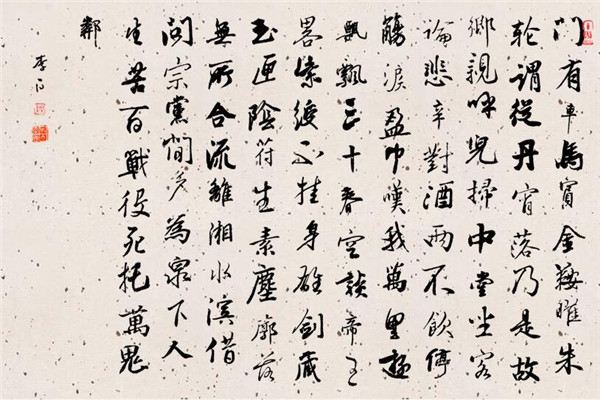 門有車馬賓金鞍曜朱
轮謂從丹宵落乃是故
鄉親呼兒掃中堂坐客
論悲辛對酒兩不飲停
觴淚盈巾嘆我萬里遊
飄飄三十春空談帝王
畧紫綬不挂身雄劍藏
玉匣陰符生素塵廓落
無所合流離湘水濱借
問宗黨間多為泉下人
生苦百戰役死托萬鬼
鄰
李白